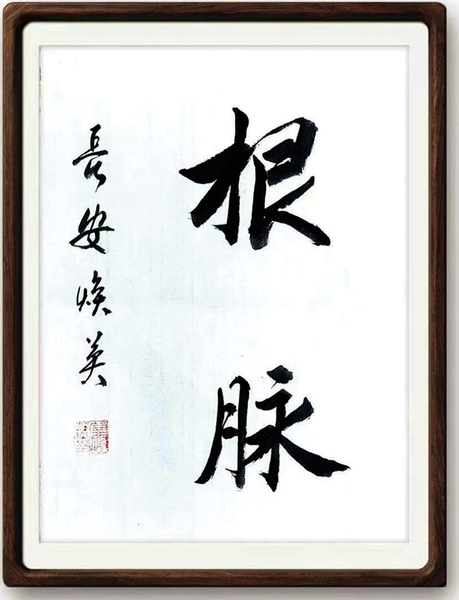 根脉
長安焕英